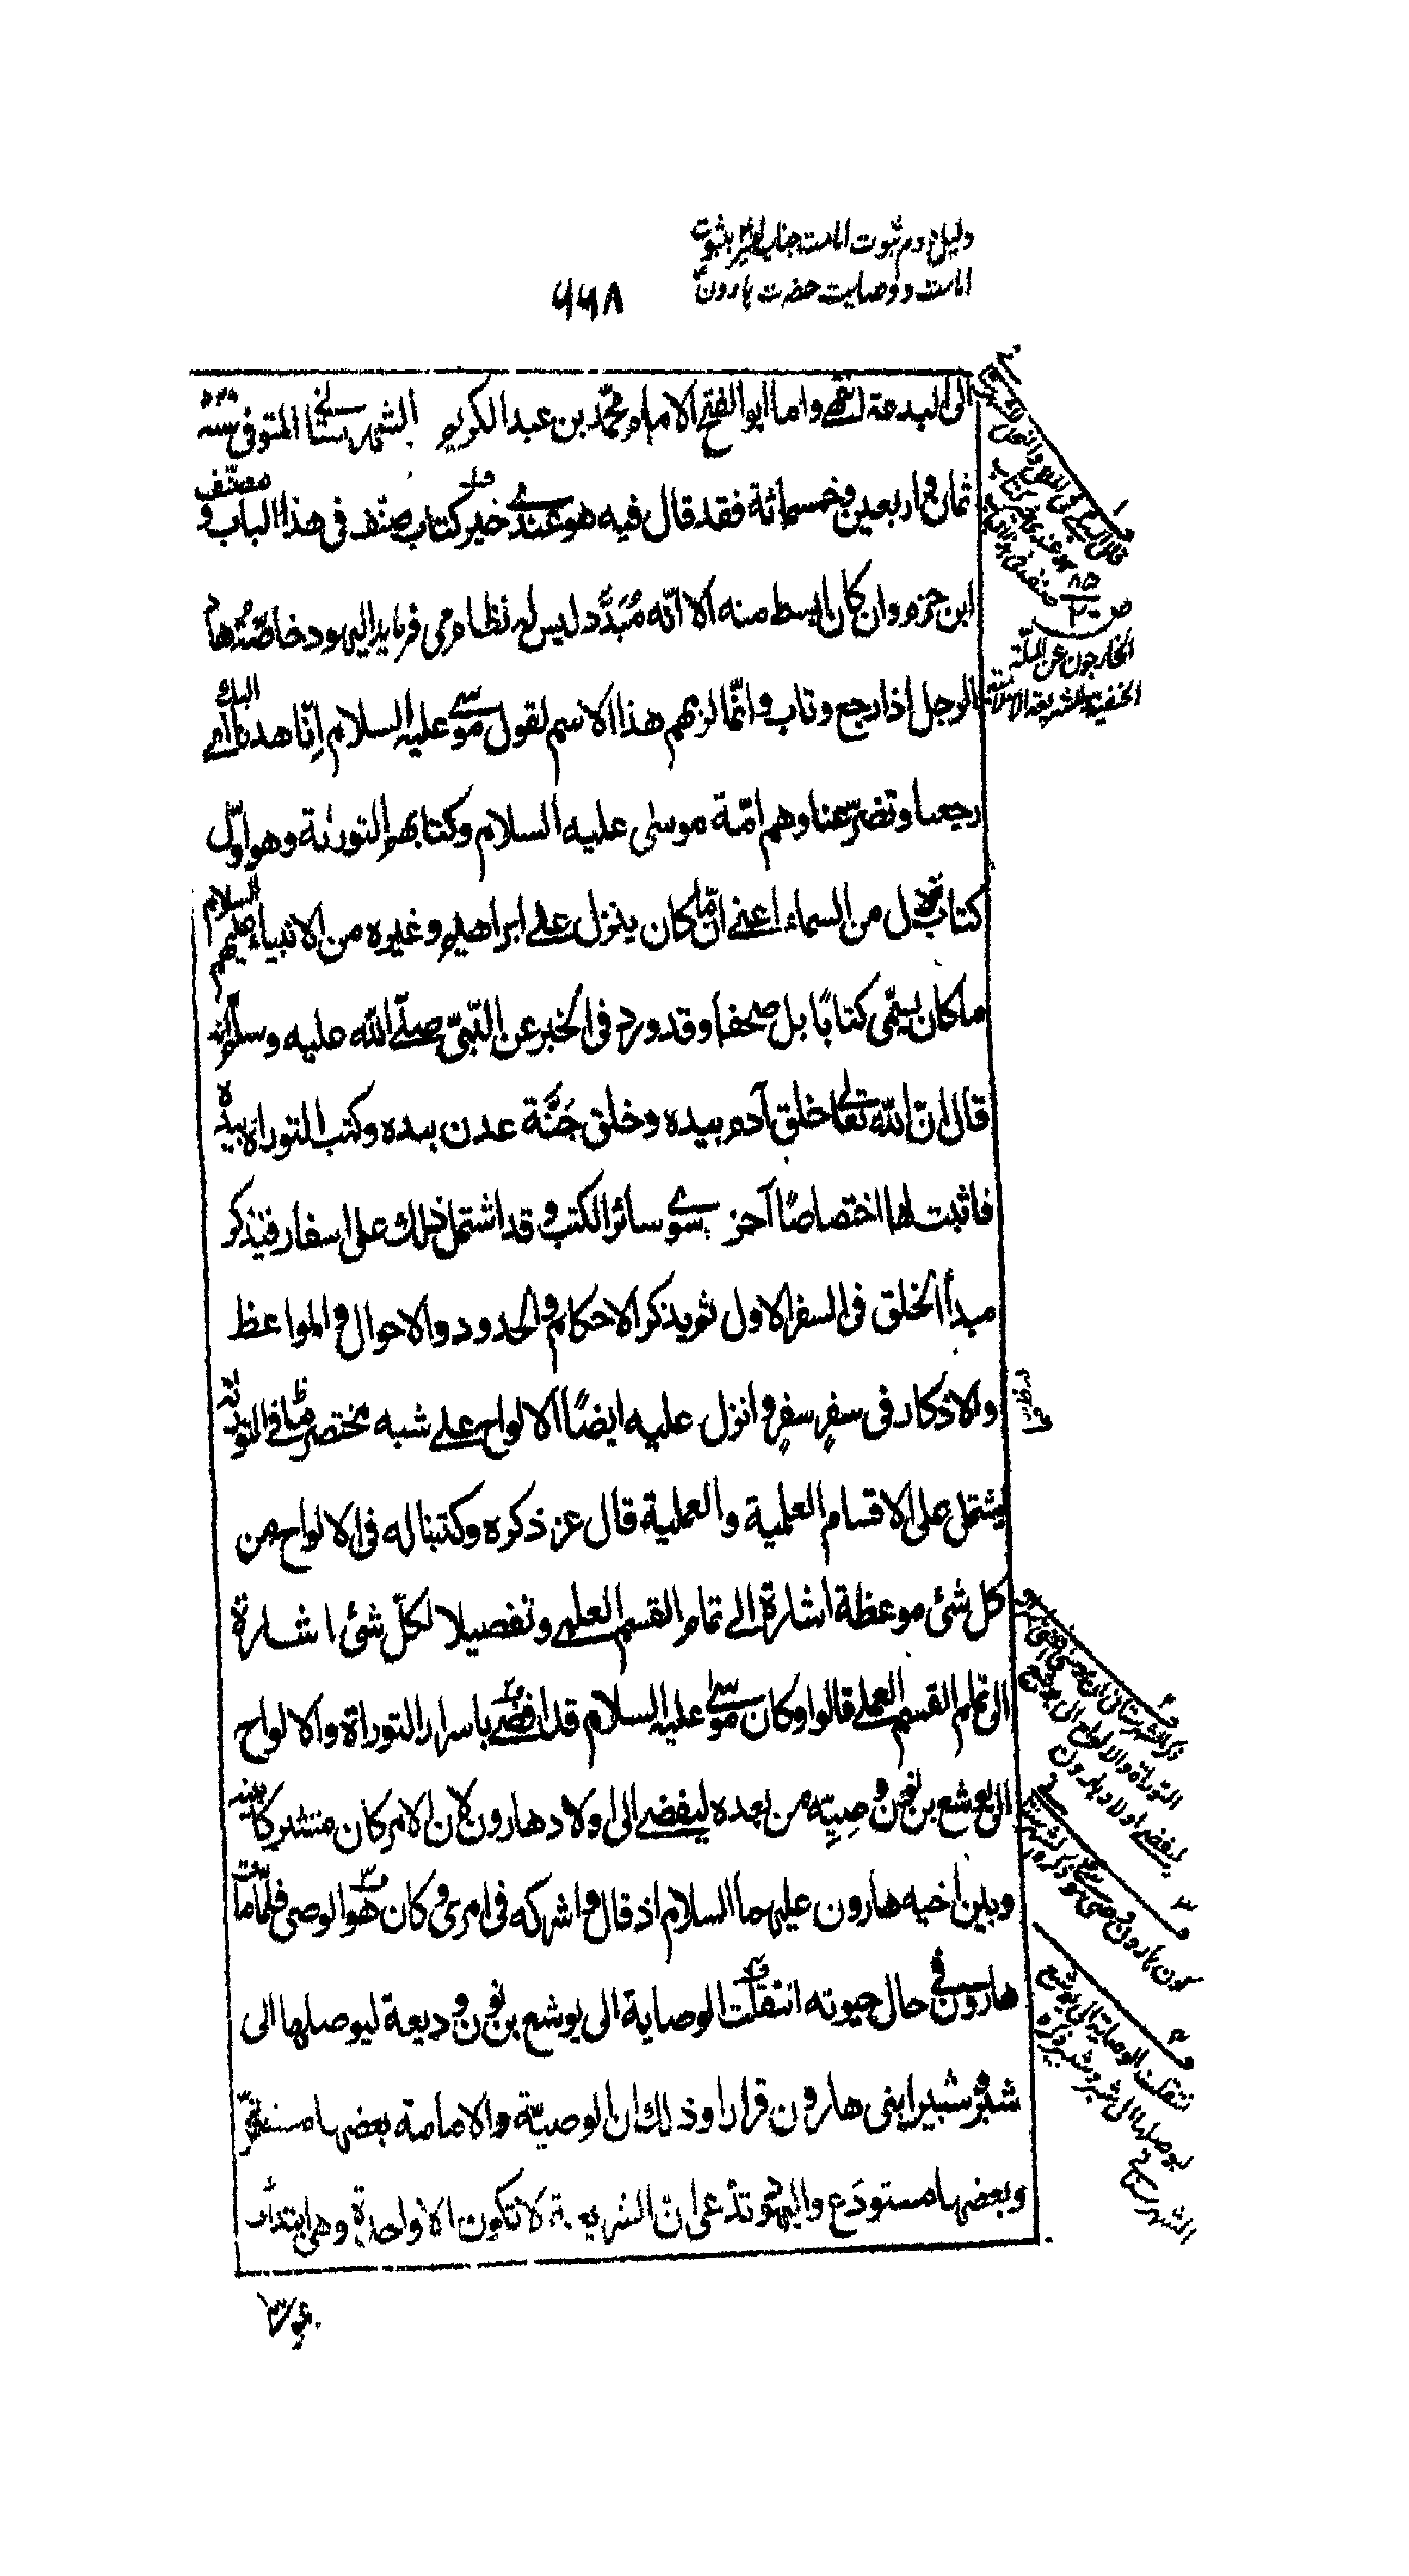 دلیل دوم ثبوت امامت جناب امیر بثبوت
امامت و وصایت حضرت هارون
۶۶۸
الى البدعة انتهى واما ابو الفتح الامام محمّد بن عبد الكريم الشهرستانى المتوفى سنة
ثمان واربعين وخمسمائة فقد قال فيه هو عندى خير كتاب صنف فى هذا الباب و مصنّف
ابن حزم وان كان ابسط منه الا انّه مُبَدَّد ليس له نظام مى فرمايد اليهود خاصّة هاد
الرجل اذا رجع وتاب وانّما لزمهم هذا الاسم لقول موسى عليه السلام اِنّا هدنا اليك اى
رجعنا وتضرّعنا وهم امّة موسى عليه السلام وكتابهم التورٰىة وهو اوّل
كتاب نزل من السماء اعنى انّ ما كان ينزل على ابراهيم وغيره من الانبياء عليهم السلام
ما كان يسمّى كتابًا بل صحفا وقد ورد فى الخبر عن النّبىّ صلّى الله عليه وسلّم انّه
قال انّ الله تعالى خلق آدم بيده وخلق جَنَّة عدن بيده وكتب التوراة بيده
فاثبت لها اختصاصًا آخر سوى سائر الكتب و قد اشتمل ذلك على اسفار فيذكر
مبدأ الخلق فى السفر الاول ثم يذكر الاحكام والحدود والاحوال والمواعظ
والاذكار فى سفرٍ سفرٍ وانزل عليه ايضًا الالواح على شبه مختصر ما فى التورٰىة
يشتمل على الاقسام العلمية والعملية قال عز ذكره وكتبنا له فى الالواح من
كل شئ موعظة اشارة الى تمام القسم العلمى وتفصيلا لكلّ شئ اشارة
الى تمام القسم العملى قالوا وكان موسى عليه السلام قد افضى باسرار التوراة والالواح
الى يوشع بن نون وصيِّه من بعده ليفضى الى اولاد هارون لان الامر كان مشتركا بينه
وبين اخيه هارون عليهما السلام اذ قال واشركه فى امرى وكان هو الوصى فلمّا مات
هارون فى حال حيوته انتقلت الوصاية الى يوشع بن نون وديعة ليوصلها الى
شبّر وشبير ابنى هارون قرارا وذلك ان الوصيّة والامامة بعضها مستقرّ
وبعضها مستودَع واليهود تدّعى ان الشريعة لا تكون الا واحدة وهى ابتدأت
ص ٨٥
٢
الخارجون عن الملّة
الحنفية والشريعة الاسلامية
التوراة والالواح الى يوشع
ليفضى الى اولاد هارون
انتقلت الوصاية الى يوشع
ليوصلها الى شبر وشبير